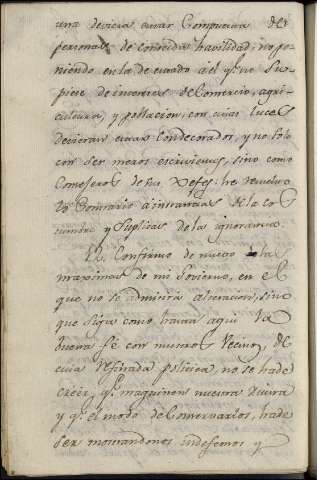 una deviera estar Compuesta de
personas de conocida havilidad, no po-
niendo en lo de cuado à el qe. no su-
piese de intereses de Comercio, agri-
cultura, y poblacion, con cuias luces
devieran estar condecorados, y no solo
con ser meros escrivientes, sino como
Consejeros de sus Xefes: he resuelto
lo Contrario à instancias de la cos
tumbre y suplicas de la ignorancia.
Confirmo de nuevo la
maximas de mi Govierno, en el
que no se admitirà alteracion, sino
que siga como hasta aqui la
buena fè con nuestros Vecinos, de
cuia refinada politica no se ha de
creer, qe. maquinen nuestra ruina
y qe. el modo de Conservarlos, ha de
ser mostrandonos indefensos y